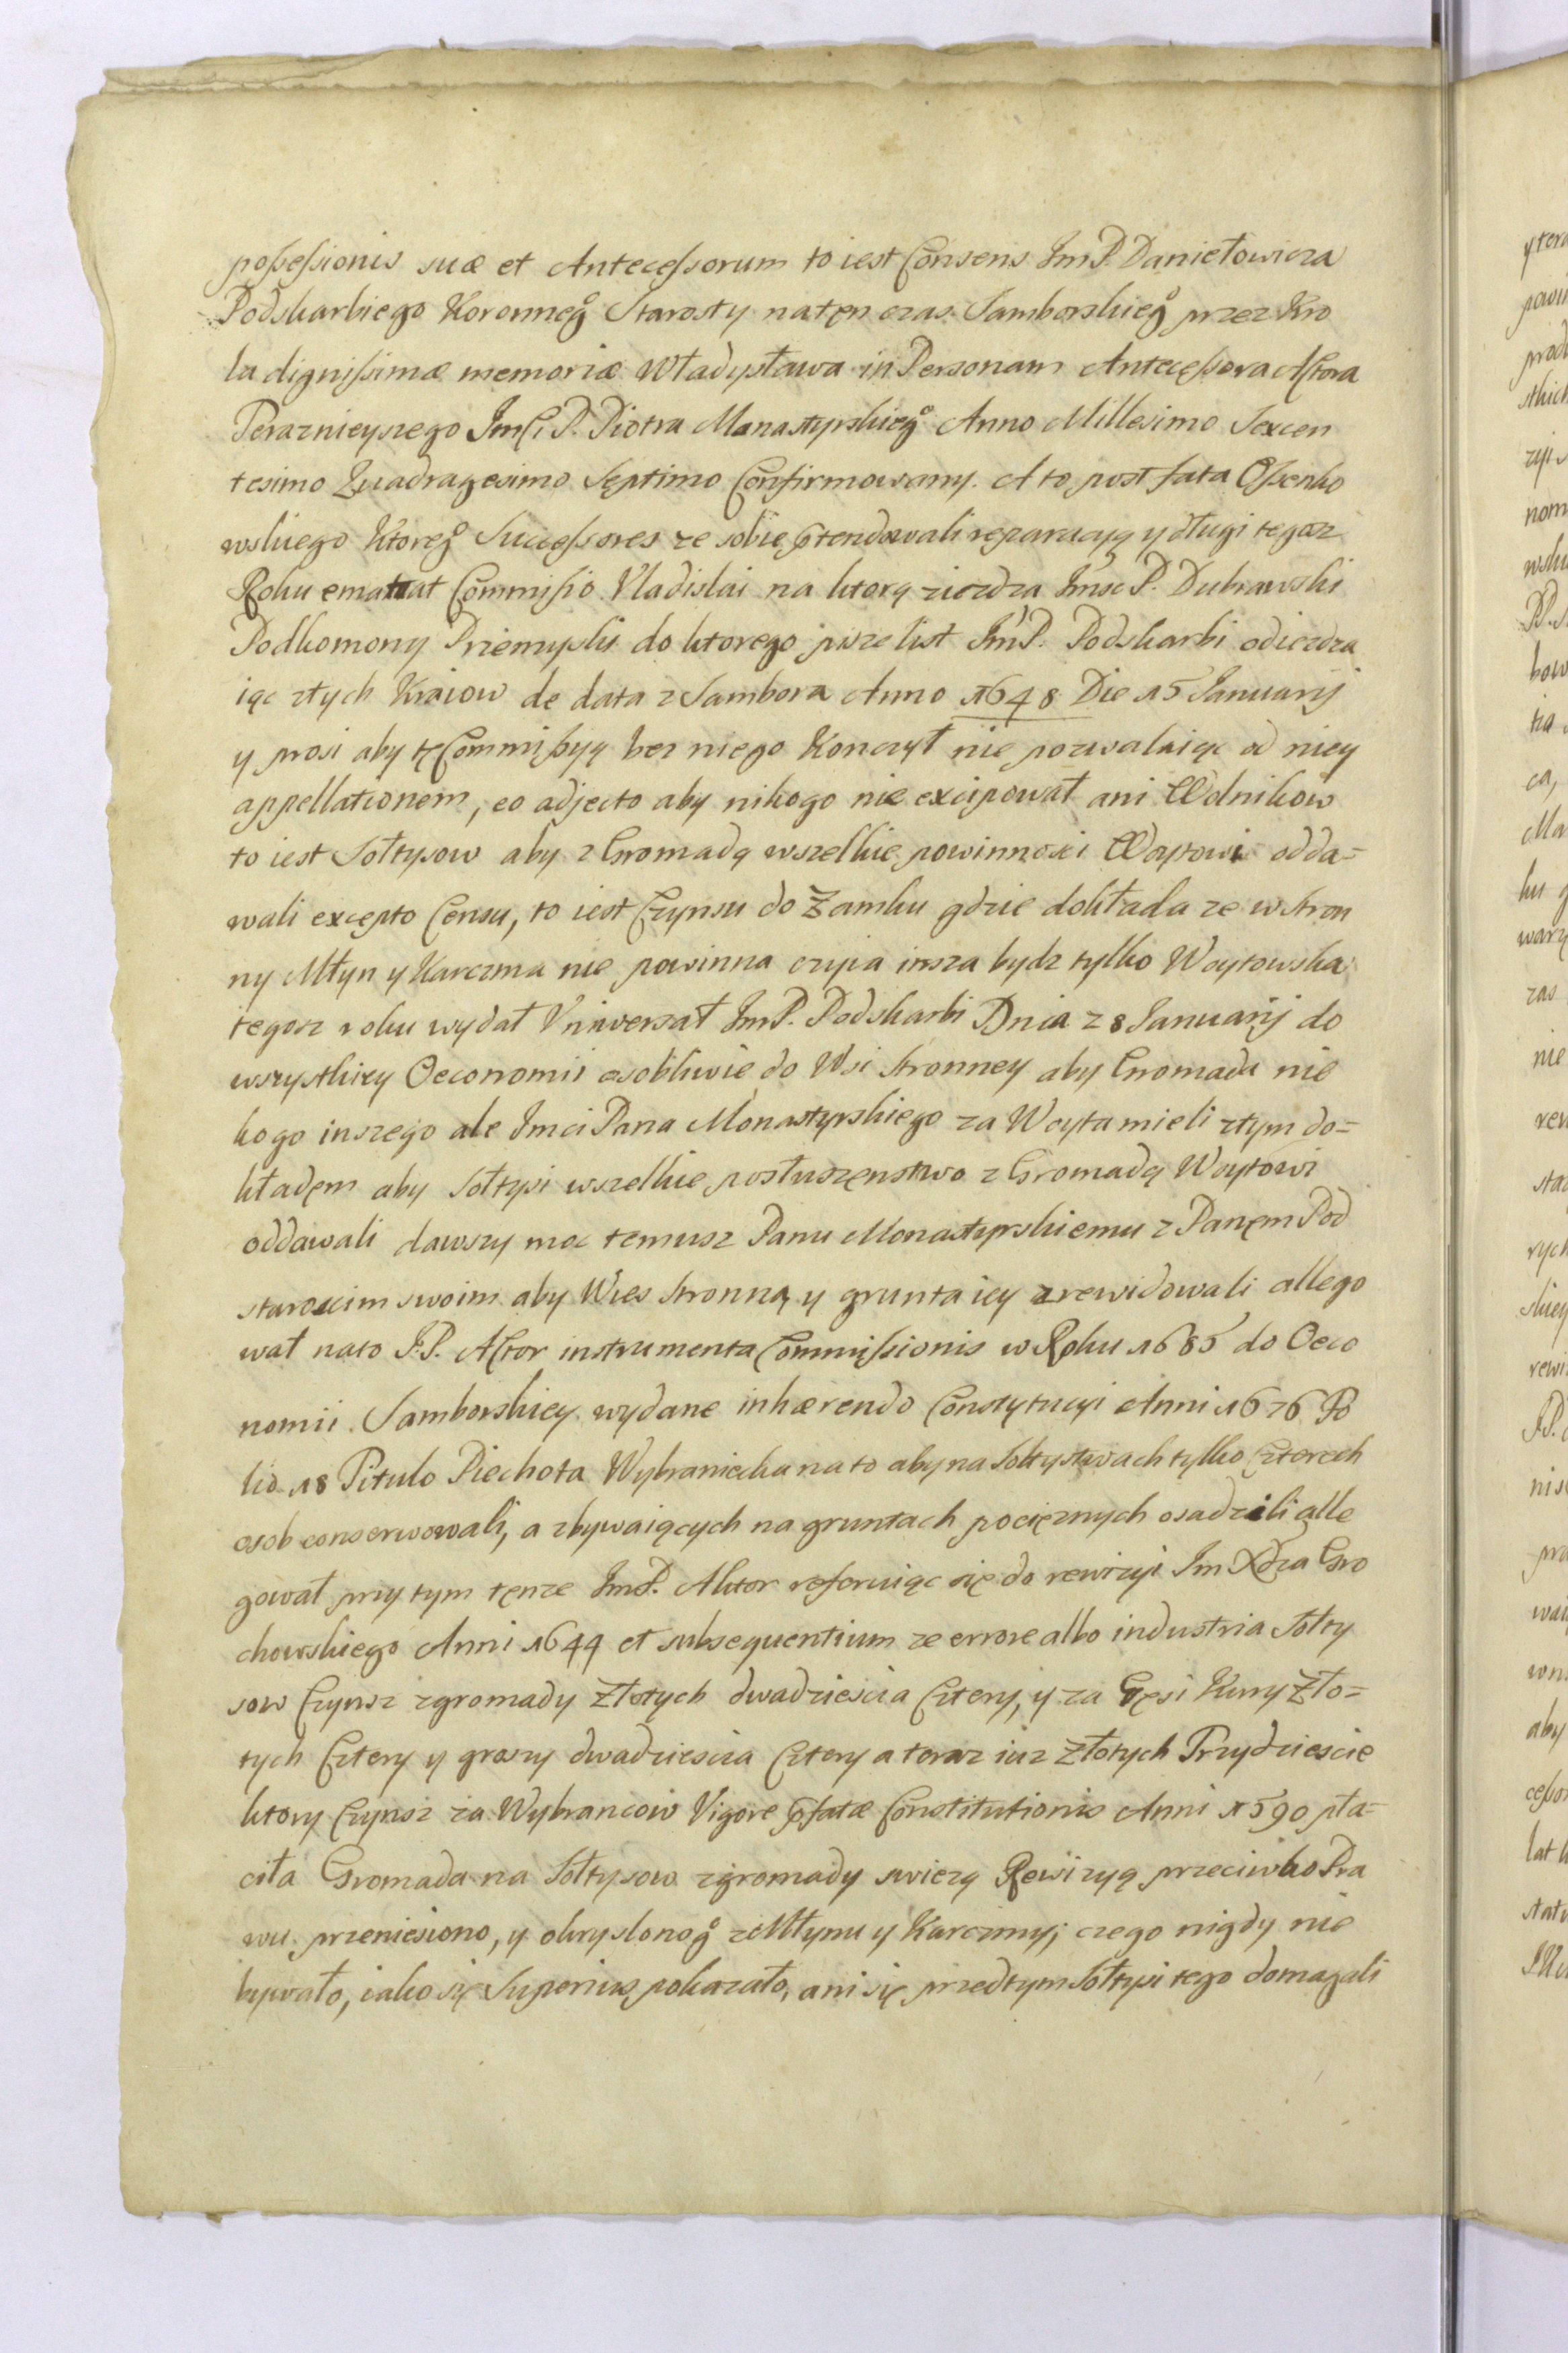 possessionis suæ et Antecessorum to iest Consens ImP. Daniełowicza
Podskarbiego Koronneg° Starosty natęn czas Samborskieg° przez Kro
la dignissimæ memoriæ Władysława in Personam Antecessora Actora
Teraznieyszego Imci P. Piotra Manastyrskieg° Anno Millesimo Sexcen
tesimo Quadragesimo Septimo Confirmowany. A to post fata Ossenko
wskiego Ktoreg° Successores ze sobie prtendowali reparacyą y długi tegoz
Roku emanat Commissio Vladislai na ktorą ziezdza Imsc P. Dubrawski
Podkomorny Przemyski do ktorego pisze list ImP. Podskarbi odiezdza
iąc ztych Kraiow de data z Sambora Anno 1648 Die 15 Januarij
y prosi aby tęCommissyą bez niego Konczył nie pozwalaiąc od niey
appellationem, eo adjecto aby nikogo nie excipował ani Wolnikow
to iest Sołtysow aby z Gromadą wszelkie powinnosci Woytowi odda=
wali excepto Censu, to iest Czynsu do Zamku gdzie dokłada ze w Stron
ny Młyn y Karczma nie powinna czyia insza bydz tylko Woytowska
tegosz roku wydał Vniwersał ImP. Podskarbi Dnia 28 Januarij do
wszystkiey Oeconomii osobliwie do Wsi Stronney aby Gromada nie
kogo inszego ale Imci Pana Monastyrskiego za Woyta mieli ztym do=
kładęm aby Sołtysi wszelkie posłuszęnstwo z Gromadą Woytowi
oddawali dawszy moc temusz Panu Monastyrskiemu z Panęm Pod
staroscim swoim aby Wies Stronną y grunta iey zrewidowali allego
wał nato J.P. Actor instrumenta Commissionis w Roku 1685 do Oeco
nomii Samborskiey wydane inhærendo Constytucyi Anni 1676 Fo
lio 18 Titulo Piechota Wybraniecka na to aby na Sołtystwach tylko Czterech
osob conserwowali, a zbywaiących na gruntach pocięznych osadzili alle
gował przy tym tęnze ImP. Aktor referuiąc się do rewizyi Im Xdza Gro
chowskiego Anni 1644 et subsequentium ze errore albo industria Sołty
sow Czynsz zgromady Złotych dwadziescia Cztery, y za Gęsi Kury Zło=
tych Cztery y groszy dwadziescia Cztery a teraz iuz Złotych Trzydziescie
ktory Czynsz za Wybrancow Vigore præfatæ Constitutionis Anni 1590 pła=
ciła Gromada na Sołtysow zgromady swiezą Rewizyą przeciwko Pra
wu przeniesiono, y okryslonog° zMłynu y Karczmy; czego nigdy nie
bywało, iako się Superius pokazało, ani się przedtym Sołtysi tego domagali